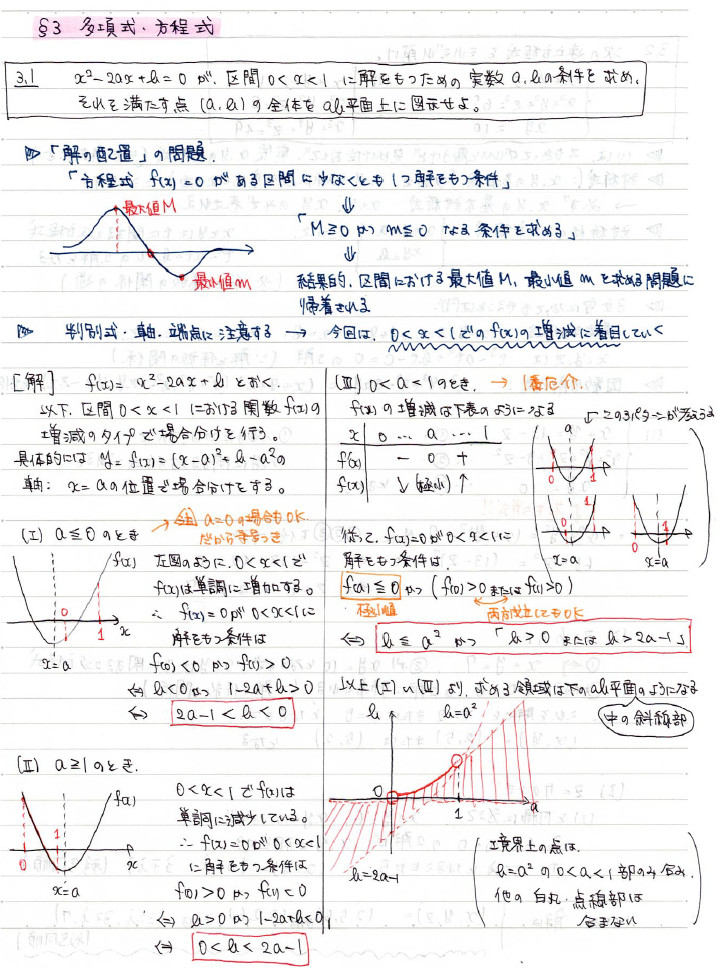 §3 多項式・方程式
3.1 x²-2ax+b=0 が、区間 0<x<1 に解をもつための実数 a, bの条件を求め、
それを満たす点 (a,b) の全体を ab平面上に図示せよ。
「解の配置」の問題.
「方程式 f(x)=0 がある区間に少なくとも1つ解をもつ条件」
最大値M
最小値m
⇓
「M≧0 かつ m≦0 なる条件を求める」
⇓
結果的、区間における最大値M、最小値mを求める問題に
帰着される
判別式・軸・端点に注意する → 今回は、0<x<1でのf(x)の増減に着目していく
[解] f(x)= x²-2ax+b とおく
以下、区間 0<x<1 における関数 f(x)の
増減のタイプで場合分けを行う。
具体的には y=f(x)=(x-a)²+b-a²の
軸: x=aの位置で場合分けをする。
(Ⅰ) a≦0 のとき
→ a=0の場合もOK
だから等号つき
f(x)
0
1
x
x=a
左図のように、0<x<1で
f(x)は単調に増加する。
∴ f(x)=0が 0<x<1に
解をもつ条件は
f(0)<0 かつ f(1)>0
⇔ b<0 かつ 1-2a+b>0
⇔ 2a-1<b<0
(Ⅱ) a≧1 のとき.
f(x)
0
1
x
x=a
0<x<1で f(x)は
単調に減少している。
∴ f(x)=0が 0<x<1
に解をもつ条件は
f(0)>0 かつ f(1)<0
⇔ b>0 かつ 1-2a+b<0
⇔ 0<b<2a-1
(Ⅲ) 0<a<1のとき. → 1番厄介
f(x)の増減は下表のようになる
x 0 … a … 1
f'(x) - 0 +
f(x) ↓ (極小) ↑
← この3パターンが考えうる
a
0
1
0
1
x=a
0
1
x=a
従って、f(x)=0が0<x<1に
解をもつ条件は、
f(a)≦0 かつ (f(0)>0 または f(1)>0)
極小値
両方成立してもOK
⇔ b≦a² かつ 「b>0 または b>2a-1」
以上(Ⅰ)~(Ⅲ)より、求める領域は下のab平面のようになる
中の斜線部
b
b=a²
0
1
a
b=2a-1
境界上の点は、
b=a²の0<a<1部のみ含み、
他の白丸・点線部は
含まない